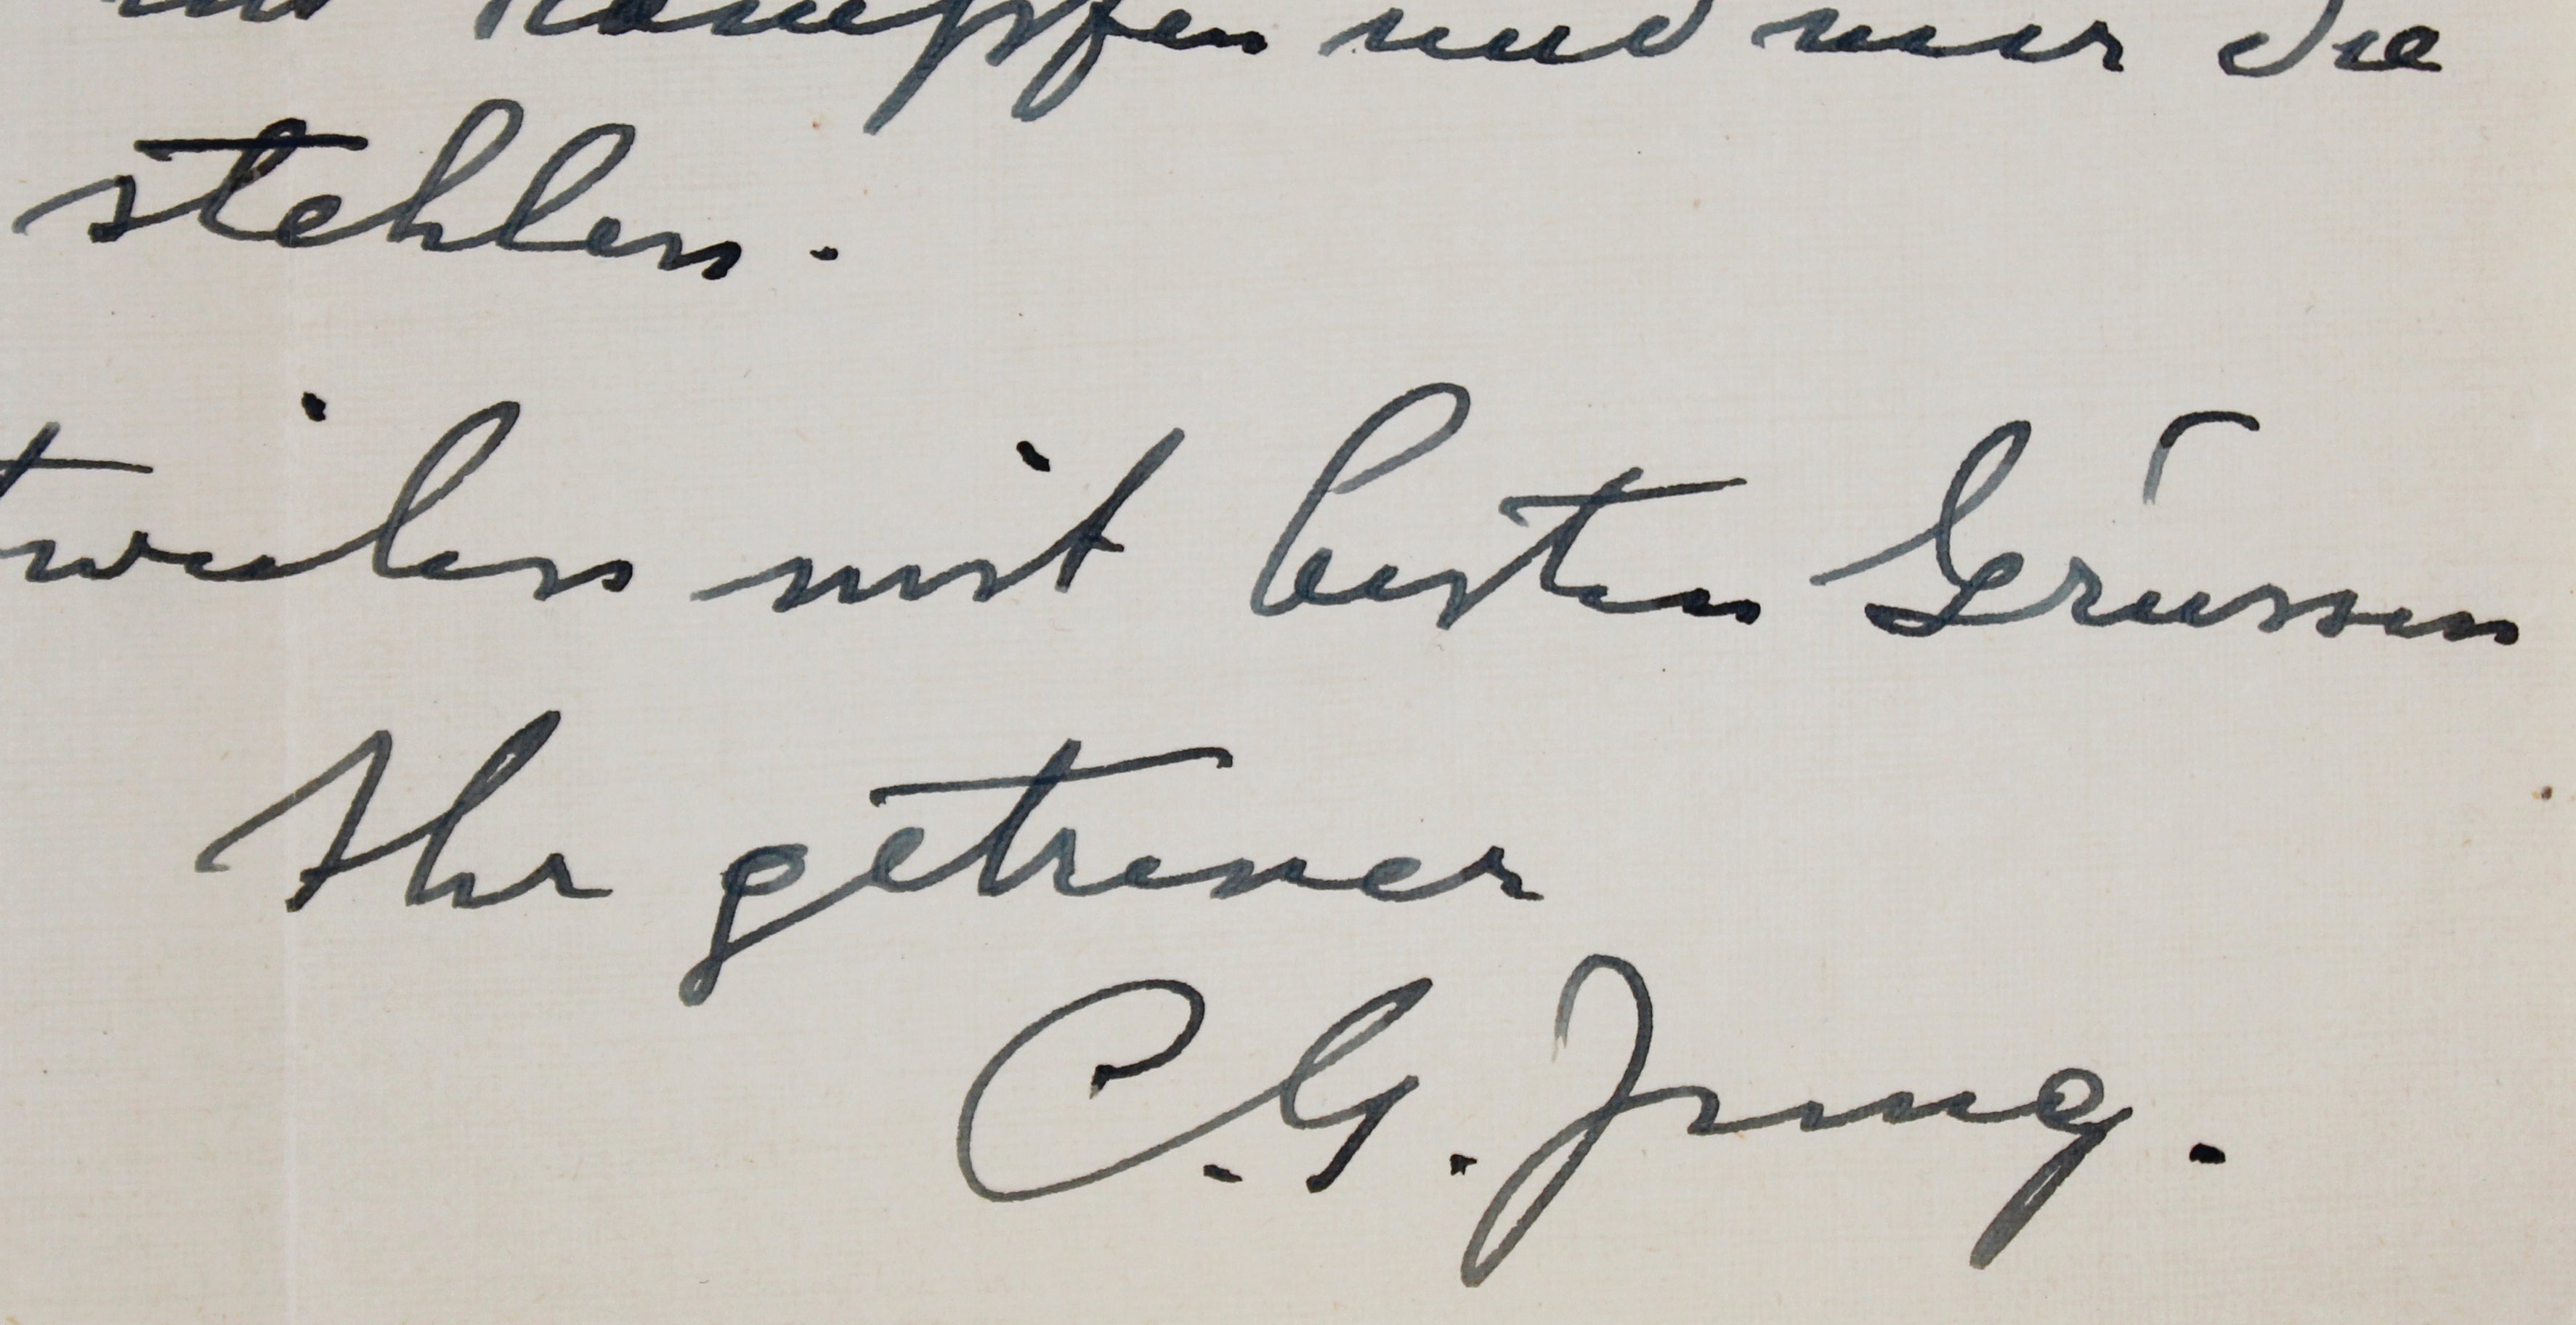 kämpfen und mir die
stehlen.
tweilen mit besten Grüssen
Ihr getreuer
C. G. Jung.